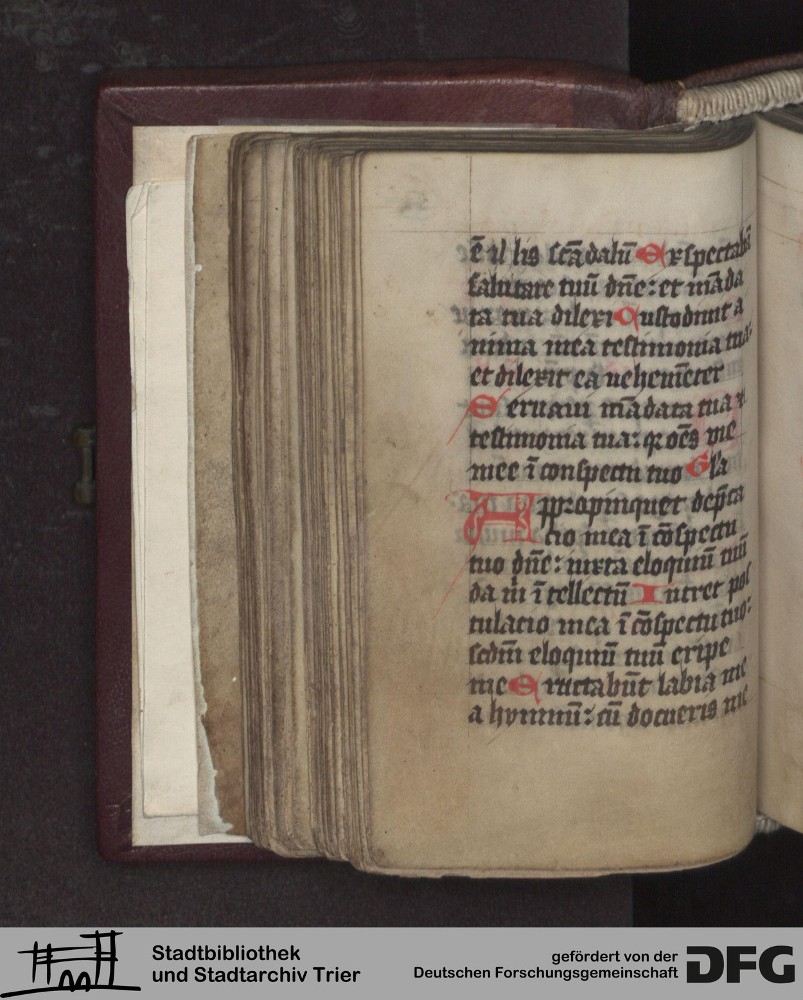 ē il lis scādalū Exspectabā
salutare tuū dn̄e: et māda
ta tua dilexi Custodiuit a
nima mea testimonia tua:
et dilexit ea vehemēter
Seruaui mādata tua et
testimonia tua: qr oēs vie
mee ī conspectu tuo Gl̄a
Appropinquet dep̄ca
cio mea ī cōspectu
tuo dn̄e: iuxta eloquiū tuū
da m̄ ītellectū Intret pos
tulacio mea ī cōspectu tuo:
scdm̄ eloquiū tuū eripe
me Eructabūt labia me
a hymnū: cū docueris me
Stadtbibliothek
und Stadtarchiv Trier
gefördert von der
Deutschen Forschungsgemeinschaft
DFG